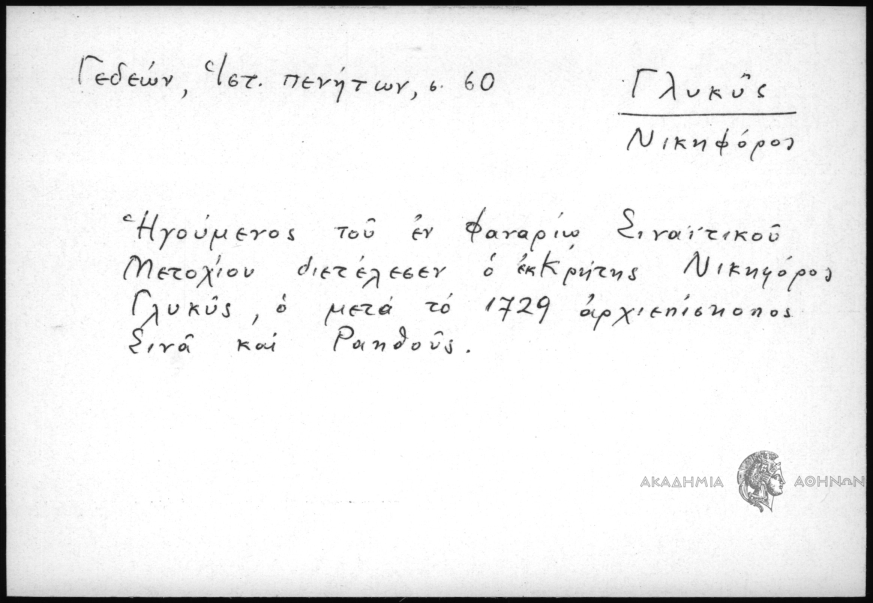 Γεδεών, Ἱστ. πενήτων, σ. 60
Γλυκῦς
Νικηφόρος
Ἡγούμενος τοῦ ἐν Φαναρίῳ Σιναϊτικοῦ
Μετοχίου διετέλεσεν ὁ ἐκ Κρήτης Νικηφόρος
Γλυκῦς, ὁ μετά τό 1729 ἀρχιεπίσκοπος
Σινᾶ καί Ραηθοῦς.
ΑΚΑΔΗΜΙΑ ΑΘΗΝΩΝ